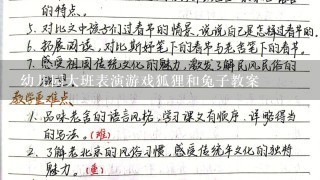 的特点。
5. 对比文中孩子们过春节的情景,说说自己是怎样过春节的。
6. 拓展阅读,对比斯好笔下的春节与老舍笔下的春节。
7. 感受祖国传统文化的魅力,激发了解民风民俗的
幼儿园大班表演游戏狐狸和兔子教案
教学重难点
1. 品味老舍的语言风格,学习课文有顺序、详略得当
的写法。(难)
2. 了解老北京的风俗习惯,感受传统年文化的独特
魅力。(重)